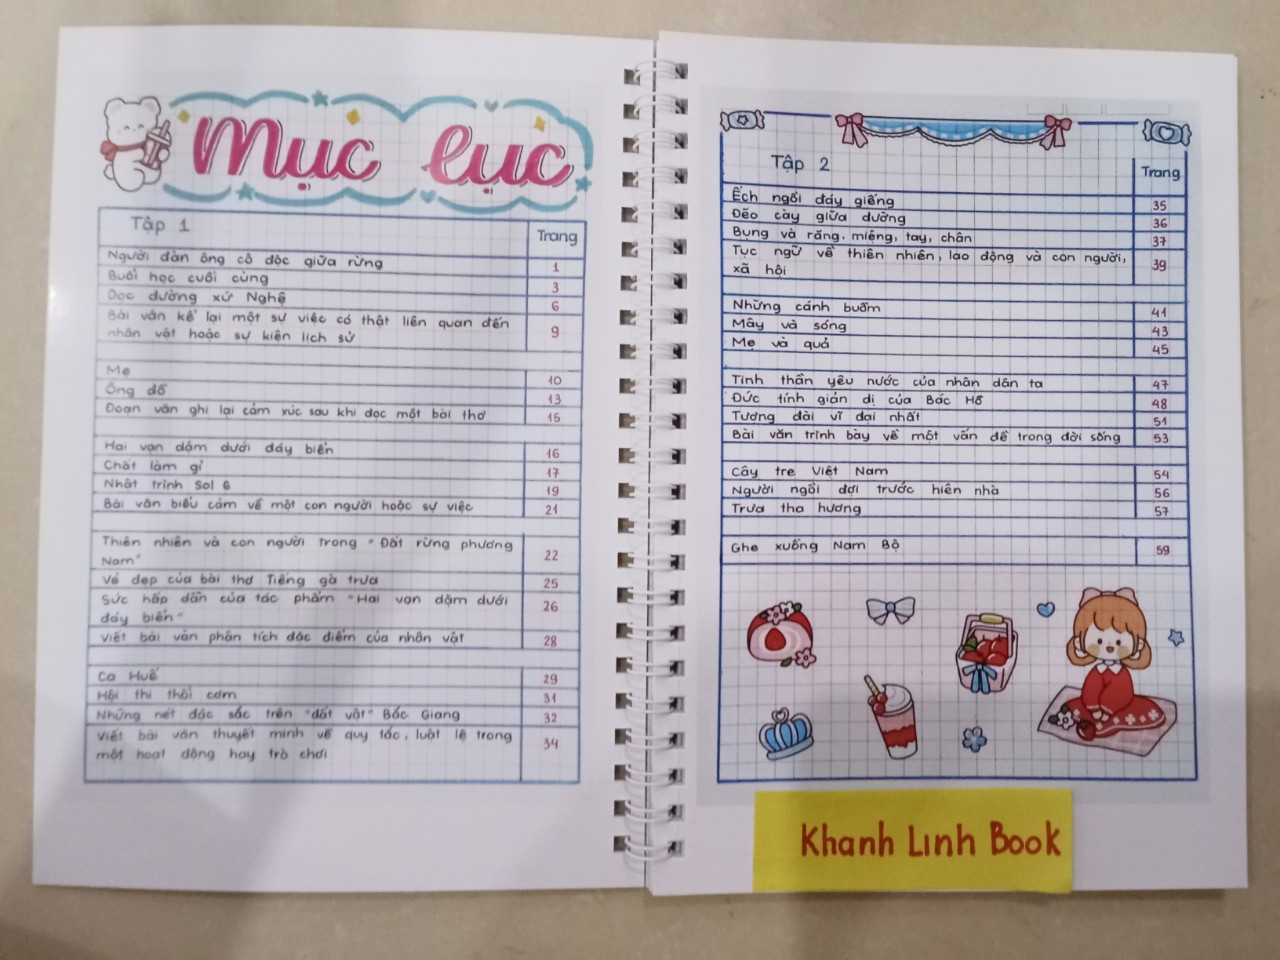 Mục lục
Tập 1
Trang
Người đàn ông cô độc giữa rừng 1
Buổi học cuối cùng 3
Dọc đường xứ Nghệ 6
Bài văn kể lại một sự việc có thật liên quan đến
nhân vật hoặc sự kiện lịch sử 9
Mẹ 10
Ông đồ 13
Đoạn văn ghi lại cảm xúc sau khi đọc một bài thơ 15
Hai vạn dặm dưới đáy biển 16
Chất làm gỉ 17
Nhật trình Sol 6 19
Bài văn biểu cảm về một con người hoặc sự việc 21
Thiên nhiên và con người trong "Đất rừng phương
Nam" 22
Vẻ đẹp của bài thơ Tiếng gà trưa 25
Sức hấp dẫn của tác phẩm "Hai vạn dặm dưới
đáy biển" 26
Viết bài văn phân tích đặc điểm của nhân vật 28
Ca Huế 29
Hội thi thổi cơm 31
Những nét đặc sắc trên "đất vật" Bắc Giang 32
Viết bài văn thuyết minh về quy tắc, luật lệ trong
một hoạt động hay trò chơi 34
Tập 2
Trang
Ếch ngồi đáy giếng 35
Đẽo cày giữa đường 36
Bụng và răng, miệng, tay, chân 37
Tục ngữ về thiên nhiên, lao động và con người,
xã hội 39
Những cánh buồm 41
Mây và sóng 43
Mẹ và quả 45
Tinh thần yêu nước của nhân dân ta 47
Đức tính giản dị của Bác Hồ 48
Tượng đài vĩ đại nhất 51
Bài văn trình bày về một vấn đề trong đời sống 53
Cây tre Việt Nam 54
Người ngồi đợi trước hiên nhà 56
Trưa tha hương 57
Ghe xuồng Nam Bộ 59
Khanh Linh Book